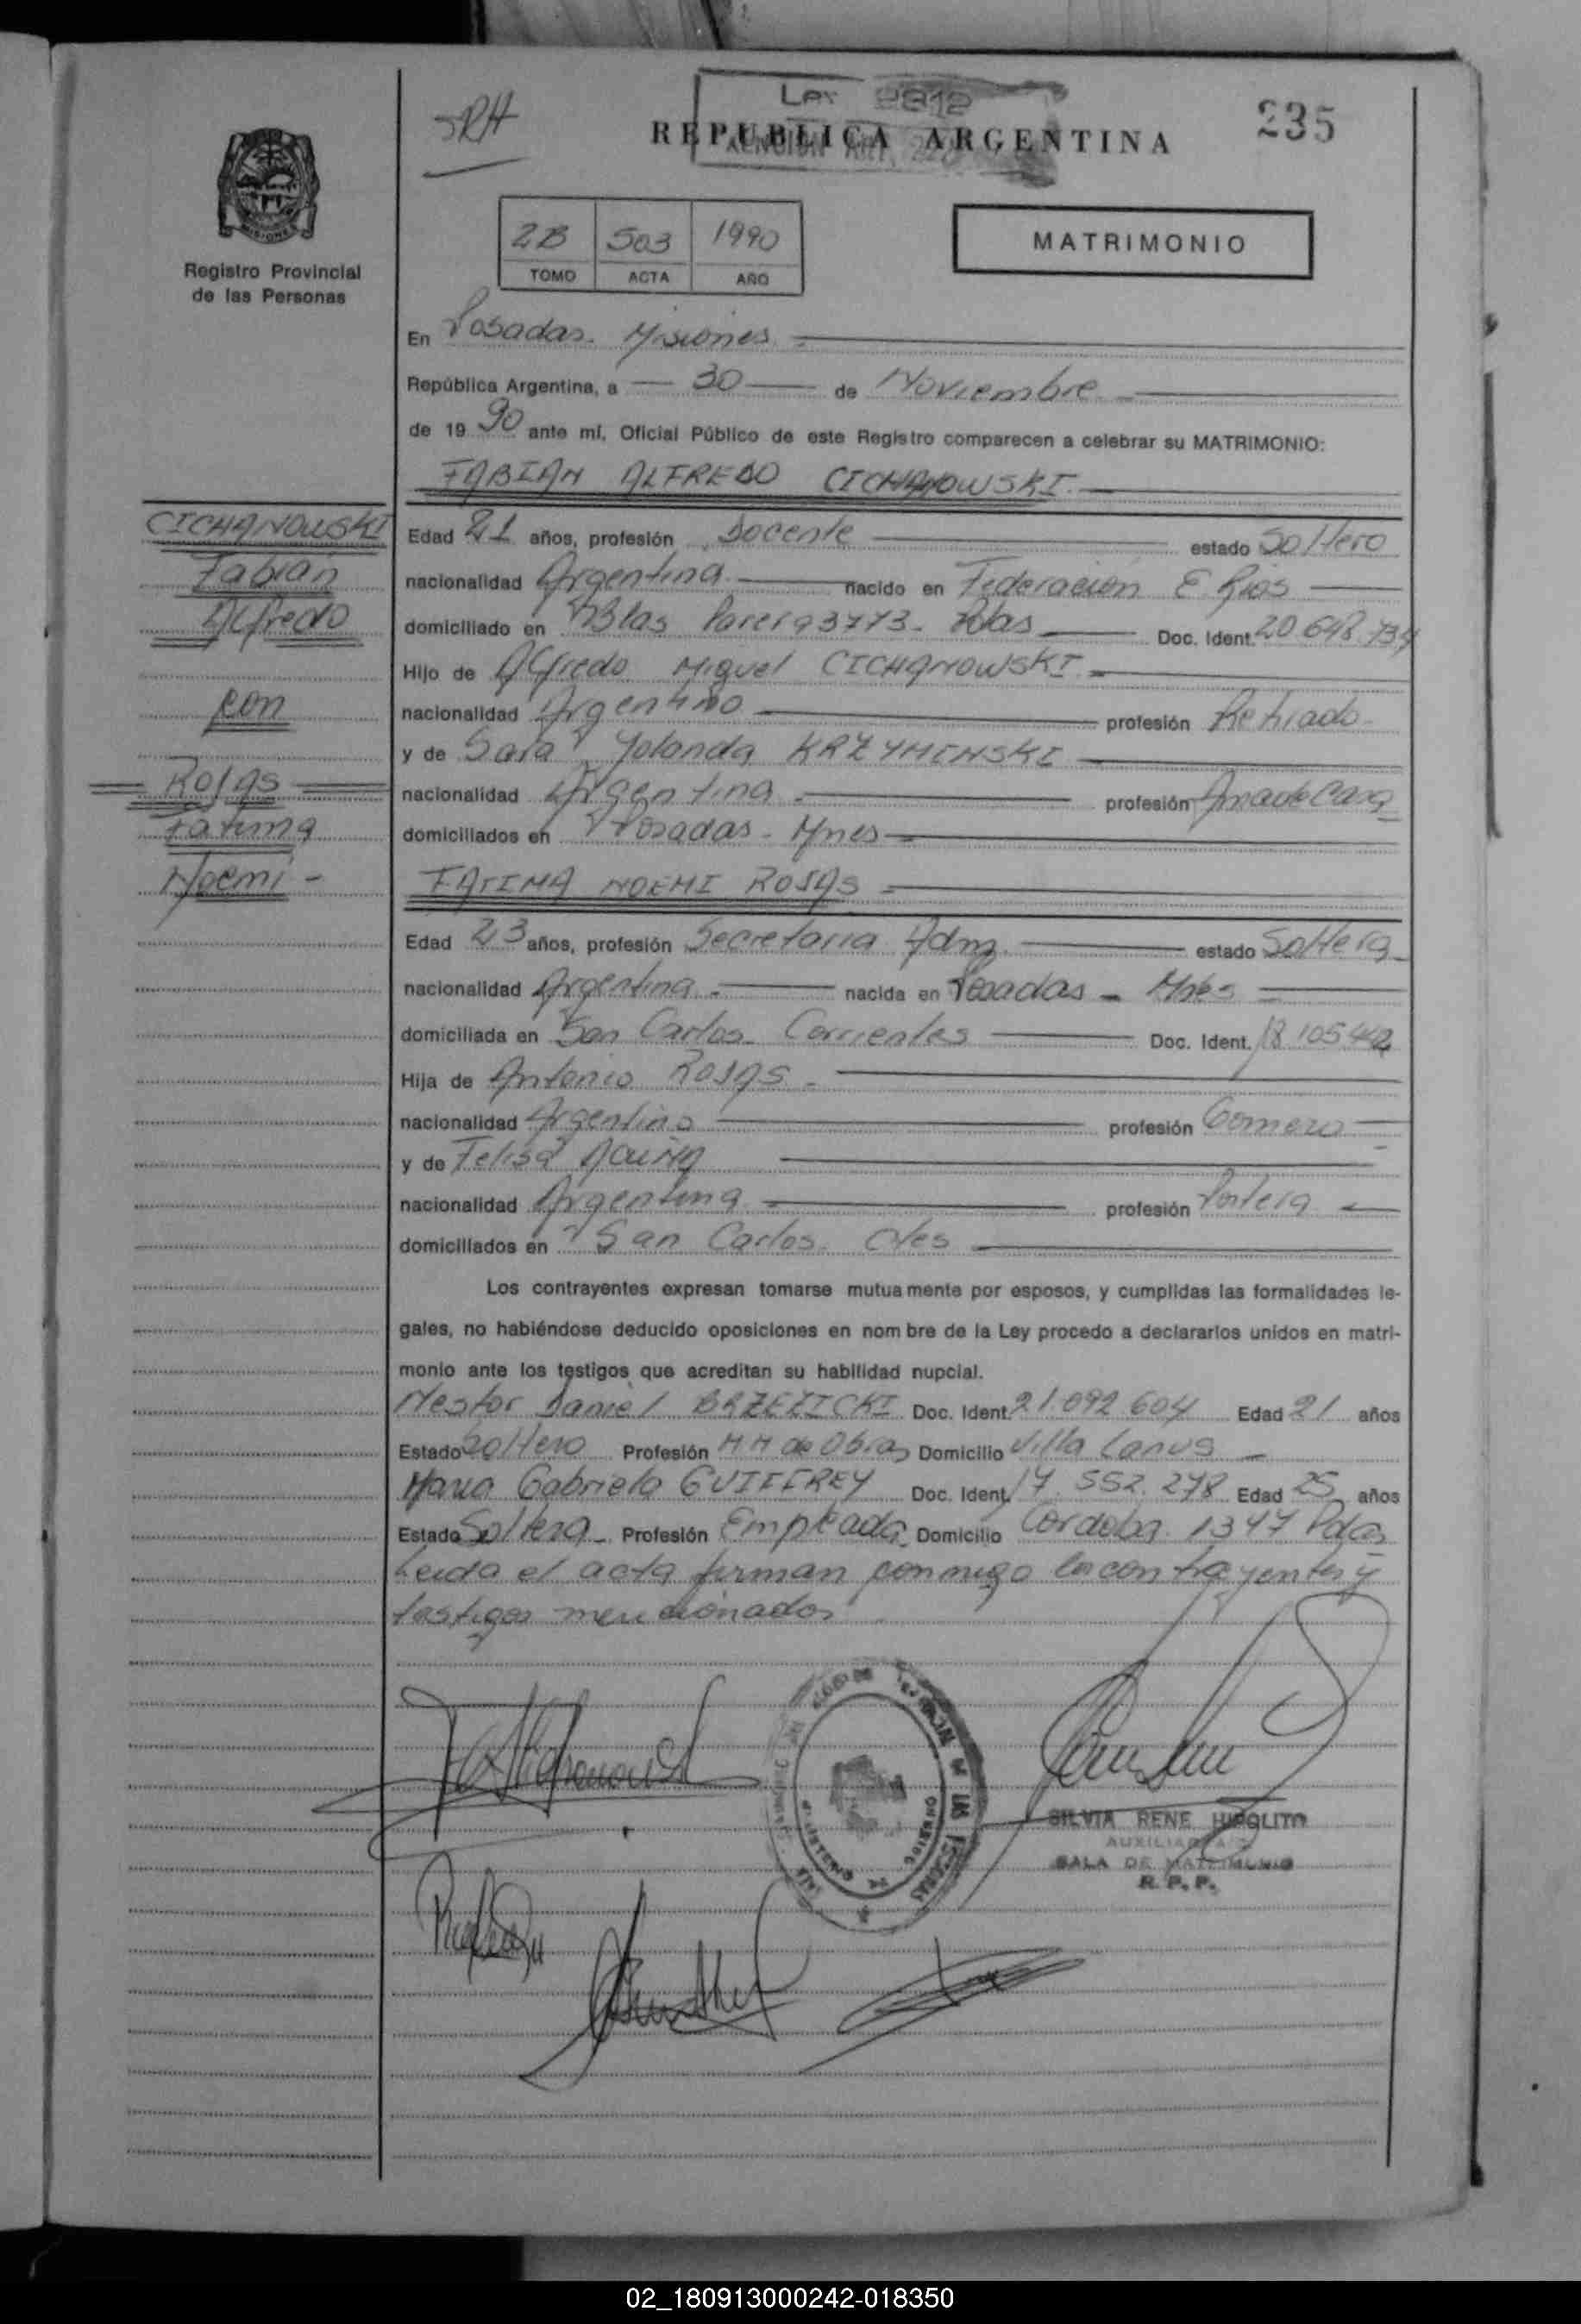 SRH
Ley 2812
235
REPUBLICA ARGENTINA
2B 503 1990
TOMO ACTA AÑO
MATRIMONIO
MISIONES
Registro Provincial
de las Personas
En Posadas. Misiones.
República Argentina, a 30 de Noviembre
de 19 90 ante mí, Oficial Público de este Registro comparecen a celebrar su MATRIMONIO:
FABIAN ALFREDO CICHANOWSKI.
CICHANOWSKI
Fabián
Alfredo
con
Rojas
Fatima
Noemi -
Edad 21 años, profesión Docente estado Soltero
nacionalidad Argentina. nacido en Federación E. Rios
domiciliado en Blas Parera 3773. Pdas Doc. Ident. 20.648.734
Hijo de Alfredo Miguel CICHANOWSKI.
nacionalidad Argentino profesión Retirado
y de Sara Yolanda KRZYMINSKI
nacionalidad Argentina profesión Ama de Casa
domiciliados en Posadas - Mnes
FATIMA NOEMI ROJAS
Edad 23 años, profesión Secretaria Adm. estado Soltera
nacionalidad Argentina nacida en Posadas - Mnes
domiciliada en San Carlos Corrientes Doc. Ident. 18.105.442
Hija de Antonio ROJAS
nacionalidad Argentino profesión Gomero
y de Felisa
nacionalidad Argentina profesión Portera
domiciliados en San Carlos. Ctes
Los contrayentes expresan tomarse mutuamente por esposos, y cumplidas las formalidades le-
gales, no habiéndose deducido oposiciones en nombre de la Ley procedo a declararlos unidos en matri-
monio ante los testigos que acreditan su habilidad nupcial.
Nestor Daniel BRZEZICKI Doc. Ident. 21.092.604 Edad 21 años
Estado Soltero Profesión M M de Obras Domicilio Villa Lanus
Maria Gabriela Doc. Ident. 17.552.278 Edad 25 años
Estado Soltera Profesión Empleada Domicilio Cordoba 1347 Pdas
Leida el acta firman conmigo los contrayentes y
testigos mencionados
SILVIA RENE HIPOLITO
AUXILIAR
SALA DE MATRIMONIO
R. P. P.
02_180913000242-018350